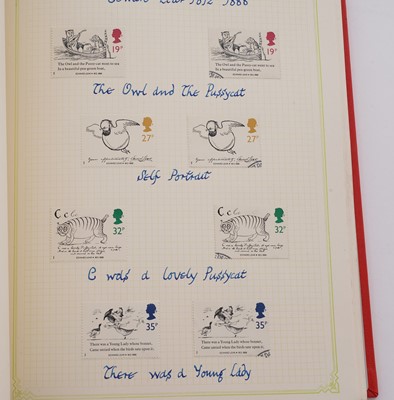 Edward Lear 1812 1888
19P
19P
The Owl and the Pussy-cat went to sea
In a beautiful pea-green boat,
The Owl and the Pussy-cat went to sea
In a beautiful pea-green boat,
The Owl and The Pussycat
27P
27P
Self Portrait
C c c
32P
C c c
32P
C was a Lovely Pussycat
35P
35P
There was a Young Lady whose bonnet,
Came untied when the birds sate upon it;
There was a Young Lady whose bonnet,
Came untied when the birds sate upon it;
There was a Young Lady